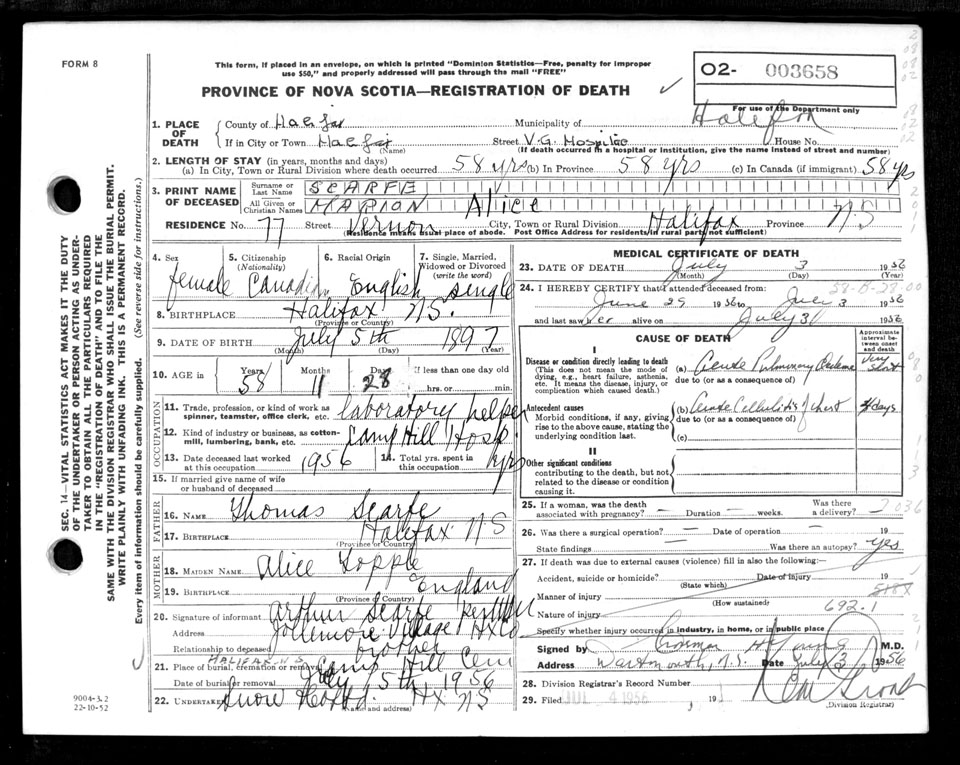 FORM 8
This form, if placed in an envelope, on which is printed "Dominion Statistics—Free, penalty for improper
use $50," and properly addressed will pass through the mail "FREE"
02- 003658
PROVINCE OF NOVA SCOTIA—REGISTRATION OF DEATH
For use of the Department only
1. PLACE OF DEATH
County of Halifax Municipality of Halifax
If in City or Town Halifax Street V.G. Hospital House No.
(Name) (If death occurred in a hospital or institution, give the name instead of street and number)
2. LENGTH OF STAY (in years, months and days)
(a) In City, Town or Rural Division where death occurred 58 yrs (b) In Province 58 yrs (c) In Canada (if immigrant) 58 yrs
3. PRINT NAME OF DECEASED
Surname or Last Name SCARFE
All Given or Christian Names MARION Alice
RESIDENCE No. 77 Street Vernon City, Town or Rural Division Halifax Province N.S
(Residence means usual place of abode. Post Office Address for residents in rural parts not sufficient)
4. Sex female
5. Citizenship (Nationality) Canadian
6. Racial Origin English
7. Single, Married, Widowed or Divorced (write the word) single
8. BIRTHPLACE Halifax N.S.
(Province or Country)
9. DATE OF BIRTH July 5th 1897
(Month) (Day) (Year)
10. AGE in Years 58 Months 11 Days 28 If less than one day old
hrs. or min.
OCCUPATION
11. Trade, profession, or kind of work as spinner, teamster, office clerk, etc. laboratory helper
12. Kind of industry or business, as cotton-mill, lumbering, bank, etc. Camp Hill Hosp.
13. Date deceased last worked at this occupation 1956
14. Total yrs. spent in this occupation yrs
15. If married give name of wife or husband of deceased
FATHER
16. NAME Thomas Scarfe
17. BIRTHPLACE Halifax N S
(Province or Country)
MOTHER
18. MAIDEN NAME Alice
19. BIRTHPLACE England
(Province or Country)
20. Signature of informant Arthur Scarfe
Address Jollimore Village Hx Co
Relationship to deceased brother
HALIFAX N.S
21. Place of burial, cremation or removal Camp Hill Cem
Date of burial or removal July 5th 1956
22. UNDERTAKER Snow Hx NS
(Name and address)
MEDICAL CERTIFICATE OF DEATH
23. DATE OF DEATH July 3 1956
(Month) (Day) (Year)
58-B-28-00
24. I HEREBY CERTIFY that I attended deceased from:
June 29 1956 to July 3 1956
and last saw her alive on July 3 1956
CAUSE OF DEATH
Approximate interval between onset and death
I
Disease or condition directly leading to death
(This does not mean the mode of dying, e.g., heart failure, asthenia, etc. It means the disease, injury, or complication which caused death.)
(a) Acute Pulmonary Oedema Very short
due to (or as a consequence of)
Antecedent causes
Morbid conditions, if any, giving rise to the above cause, stating the underlying condition last.
(b) Acute Cellulitis of chest 4 days
due to (or as a consequence of)
(c)
II
Other significant conditions
contributing to the death, but not related to the disease or condition causing it.
25. If a woman, was the death associated with pregnancy? — Duration — weeks. Was there a delivery?
26. Was there a surgical operation — Date of operation — 19
State findings Was there an autopsy? yes
27. If death was due to external causes (violence) fill in also the following:—
Accident, suicide or homicide? Date of injury 19
(State which)
Manner of injury
(How sustained)
Nature of injury 692.1
Specify whether injury occurred in industry, in home, or in public place
Signed by M.D.
Address Dartmouth, N.S. Date July 3 1956
28. Division Registrar's Record Number
29. Filed JUL 4 1956 19
(Division Registrar)
9004-3.2
22-10-52
SEC. 14—VITAL STATISTICS ACT MAKES IT THE DUTY
OF THE UNDERTAKER OR PERSON ACTING AS UNDER-
TAKER TO OBTAIN ALL THE PARTICULARS REQUIRED
IN THE "REGISTRATION OF DEATH" AND TO FILE THE
SAME WITH THE DIVISION REGISTRAR WHO SHALL ISSUE THE BURIAL PERMIT.
WRITE PLAINLY WITH UNFADING INK. THIS IS A PERMANENT RECORD.
Every item of information should be carefully supplied. (See reverse side for instructions.)